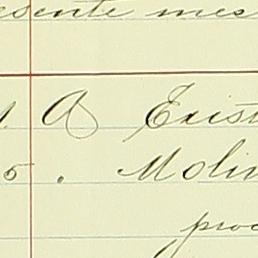 esente mes
A Exist
5. Molin
proc